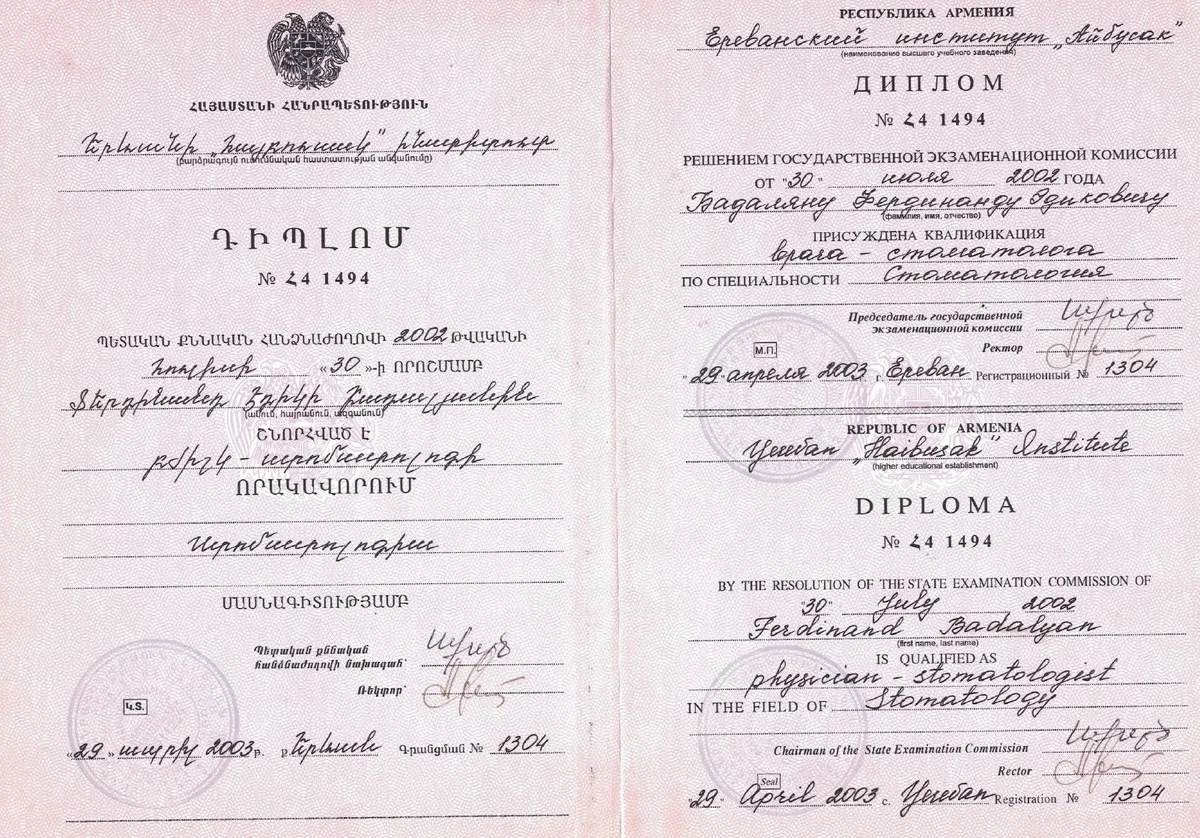 ՀԱՅԱՍՏԱՆԻ ՀԱՆՐԱՊԵՏՈՒԹՅՈՒՆ
Երևանի „Հայբուսակ" ինստիտուտ
(բարձրագույն ուսումնական հաստատության անվանումը)
ԴԻՊԼՈՄ
№ Հ4 1494
ՊԵՏԱԿԱՆ ՔՆՆԱԿԱՆ ՀԱՆՁՆԱԺՈՂՈՎԻ 2002 ԹՎԱԿԱՆԻ
հուլիսի «30»-ի ՈՐՈՇՄԱՄԲ
Ֆերդինանդ Էդիկի Բադալյանին
(անուն, հայրանուն, ազգանուն)
ՇՆՈՐՀՎԱԾ Է
բժիշկ - ստոմատոլոգի
ՈՐԱԿԱՎՈՐՈՒՄ
Ստոմատոլոգիա
ՄԱՍՆԱԳԻՏՈՒԹՅԱՄԲ
Պետական քննական
հանձնաժողովի նախագահ՝
Ռեկտոր՝
Կ.Տ.
«29» ապրիլ 2003թ. ք Երևան Գրանցման № 1304
РЕСПУБЛИКА АРМЕНИЯ
Ереванский институт „Айбусак"
(наименование высшего учебного заведения)
ДИПЛОМ
№ Հ4 1494
РЕШЕНИЕМ ГОСУДАРСТВЕННОЙ ЭКЗАМЕНАЦИОННОЙ КОМИССИИ
ОТ "30" июля 2002 ГОДА
Бадаляну Фердинанду Эдиковичу
(фамилия, имя, отчество)
ПРИСУЖДЕНА КВАЛИФИКАЦИЯ
врача - стоматолога
ПО СПЕЦИАЛЬНОСТИ Стоматология
Председатель государственной
экзаменационной комиссии
Ректор
М.П.
"29" апреля 2003 г. Ереван Регистрационный № 1304
REPUBLIC OF ARMENIA
Yerevan „Haibusak" Institute
(higher educational establishment)
DIPLOMA
№ Հ4 1494
BY THE RESOLUTION OF THE STATE EXAMINATION COMMISSION OF
"30" July 2002
Ferdinand Badalyan
(first name, last name)
IS QUALIFIED AS
physician - stomatologist
IN THE FIELD OF Stomatology
Chairman of the State Examination Commission
Rector
Seal
"29" April 2003 c. Yerevan Registration № 1304